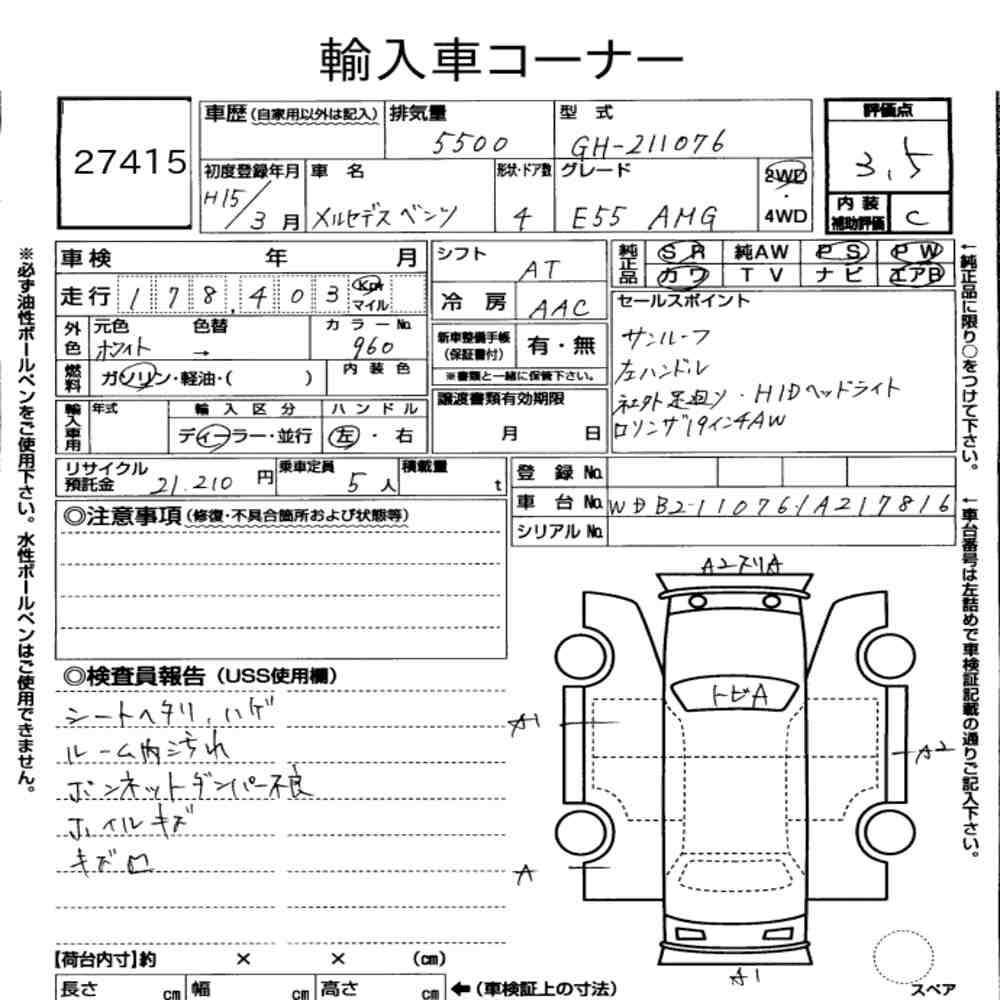 輸入車コーナー
27415
車歴(自家用以外は記入)
排気量
5500
型 式
GH-211076
評価点
3.5
初度登録年月
H15/3月
車 名
メルセデスベンツ
形状・ドア数
4
グレード
E55 AMG
2WD
・
4WD
内 装
補助評価
C
車検 年 月
シフト
AT
純正品
SR 純AW PS PW
カワ TV ナビ エアB
走行 178,403 Km
マイル
冷 房
AAC
セールスポイント
サンルーフ
左ハンドル
社外足廻り・HIDヘッドライト
ロリンザ19インチAW
外色
元色
ホワイト
色替
→
カラーNo.
960
新車整備手帳
(保証書付)
有・無
※書類と一緒に保管下さい。
燃料
ガソリン・軽油・( )
内装色
譲渡書類有効期限
月 日
輸入車用
年式
輸入区分
ディーラー・並行
ハンドル
左・右
リサイクル
預託金
21.210円
乗車定員
5人
積載量
t
登 録 No.
車 台 No.
WDB2110761A217816
シリアル No.
◎注意事項(修復・不具合箇所および状態等)
◎検査員報告(USS使用欄)
シートヘタリ、ハゲ
ルーム内汚れ
ボンネットダンパー不良
ホイルキズ
キズ凹
A2スリA
トビA
A1
A2
A
A1
スペア
【荷台内寸】約 × × (cm)
長さ cm 幅 cm 高さ cm
←(車検証上の寸法)
※必ず油性ボールペンをご使用下さい。水性ボールペンはご使用できません。
←純正品に限り○をつけて下さい。
←車台番号は左詰めで車検証記載の通りご記入下さい。